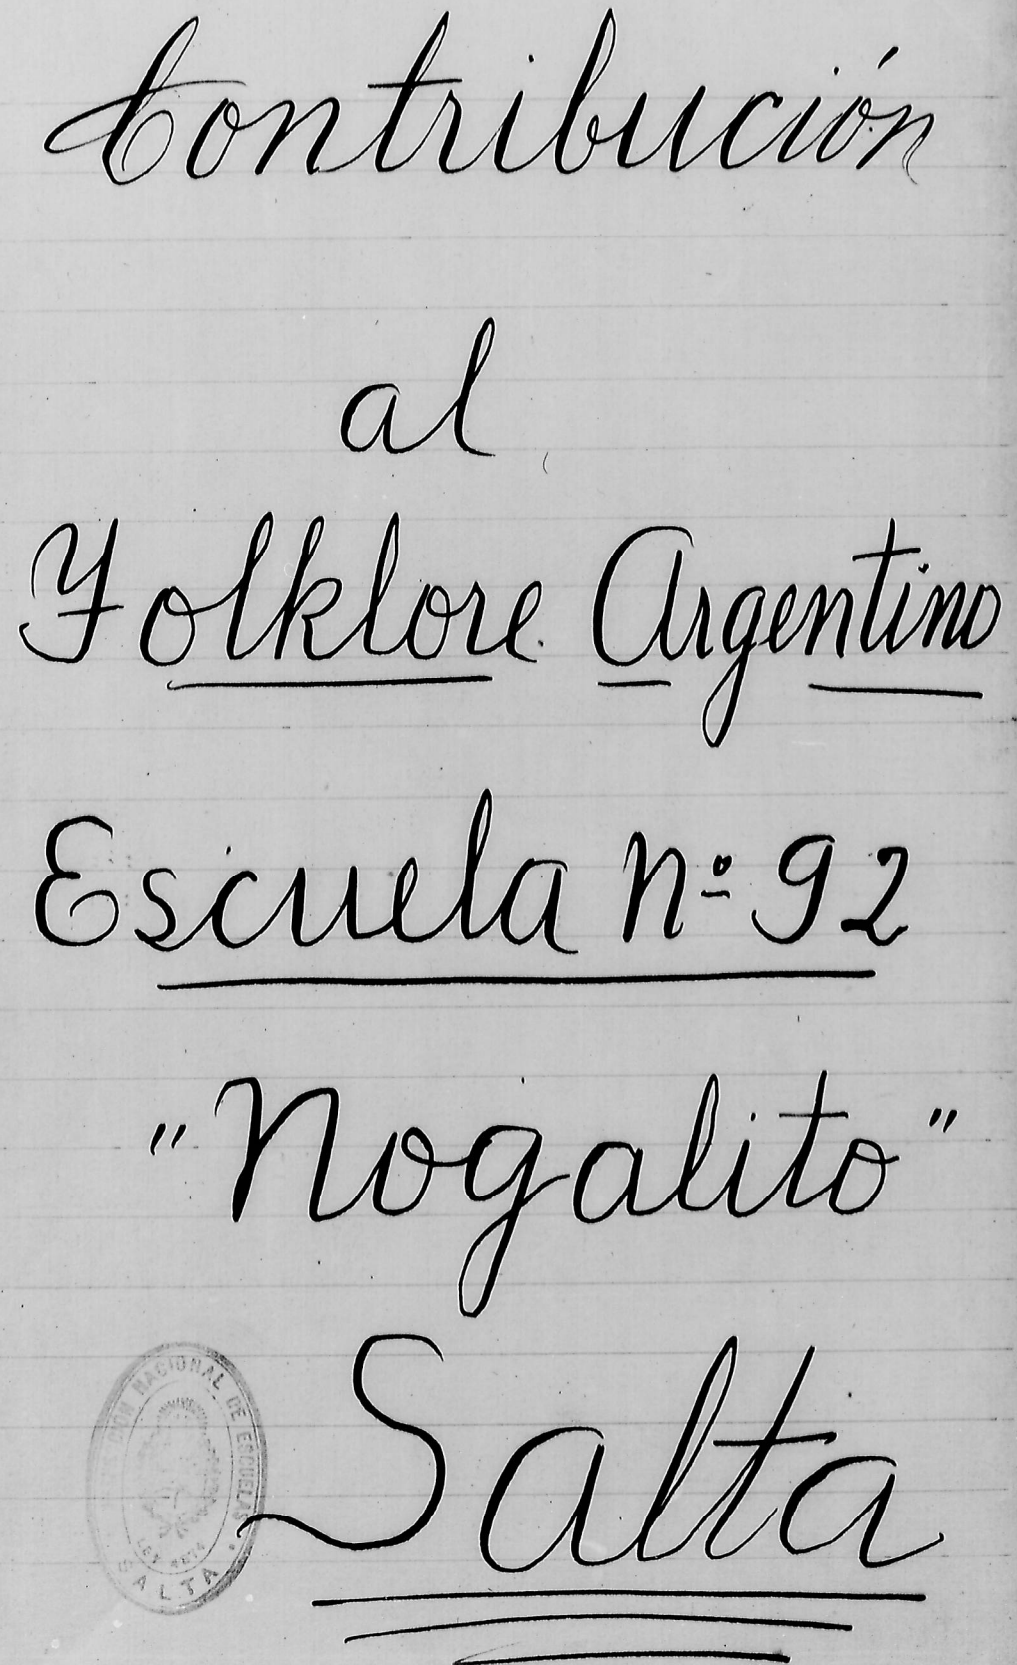 Contribución
al
Folklore Argentino
Escuela Nº 92
"Nogalito"
Salta
NACIONAL DE ESCUELAS
SALTA